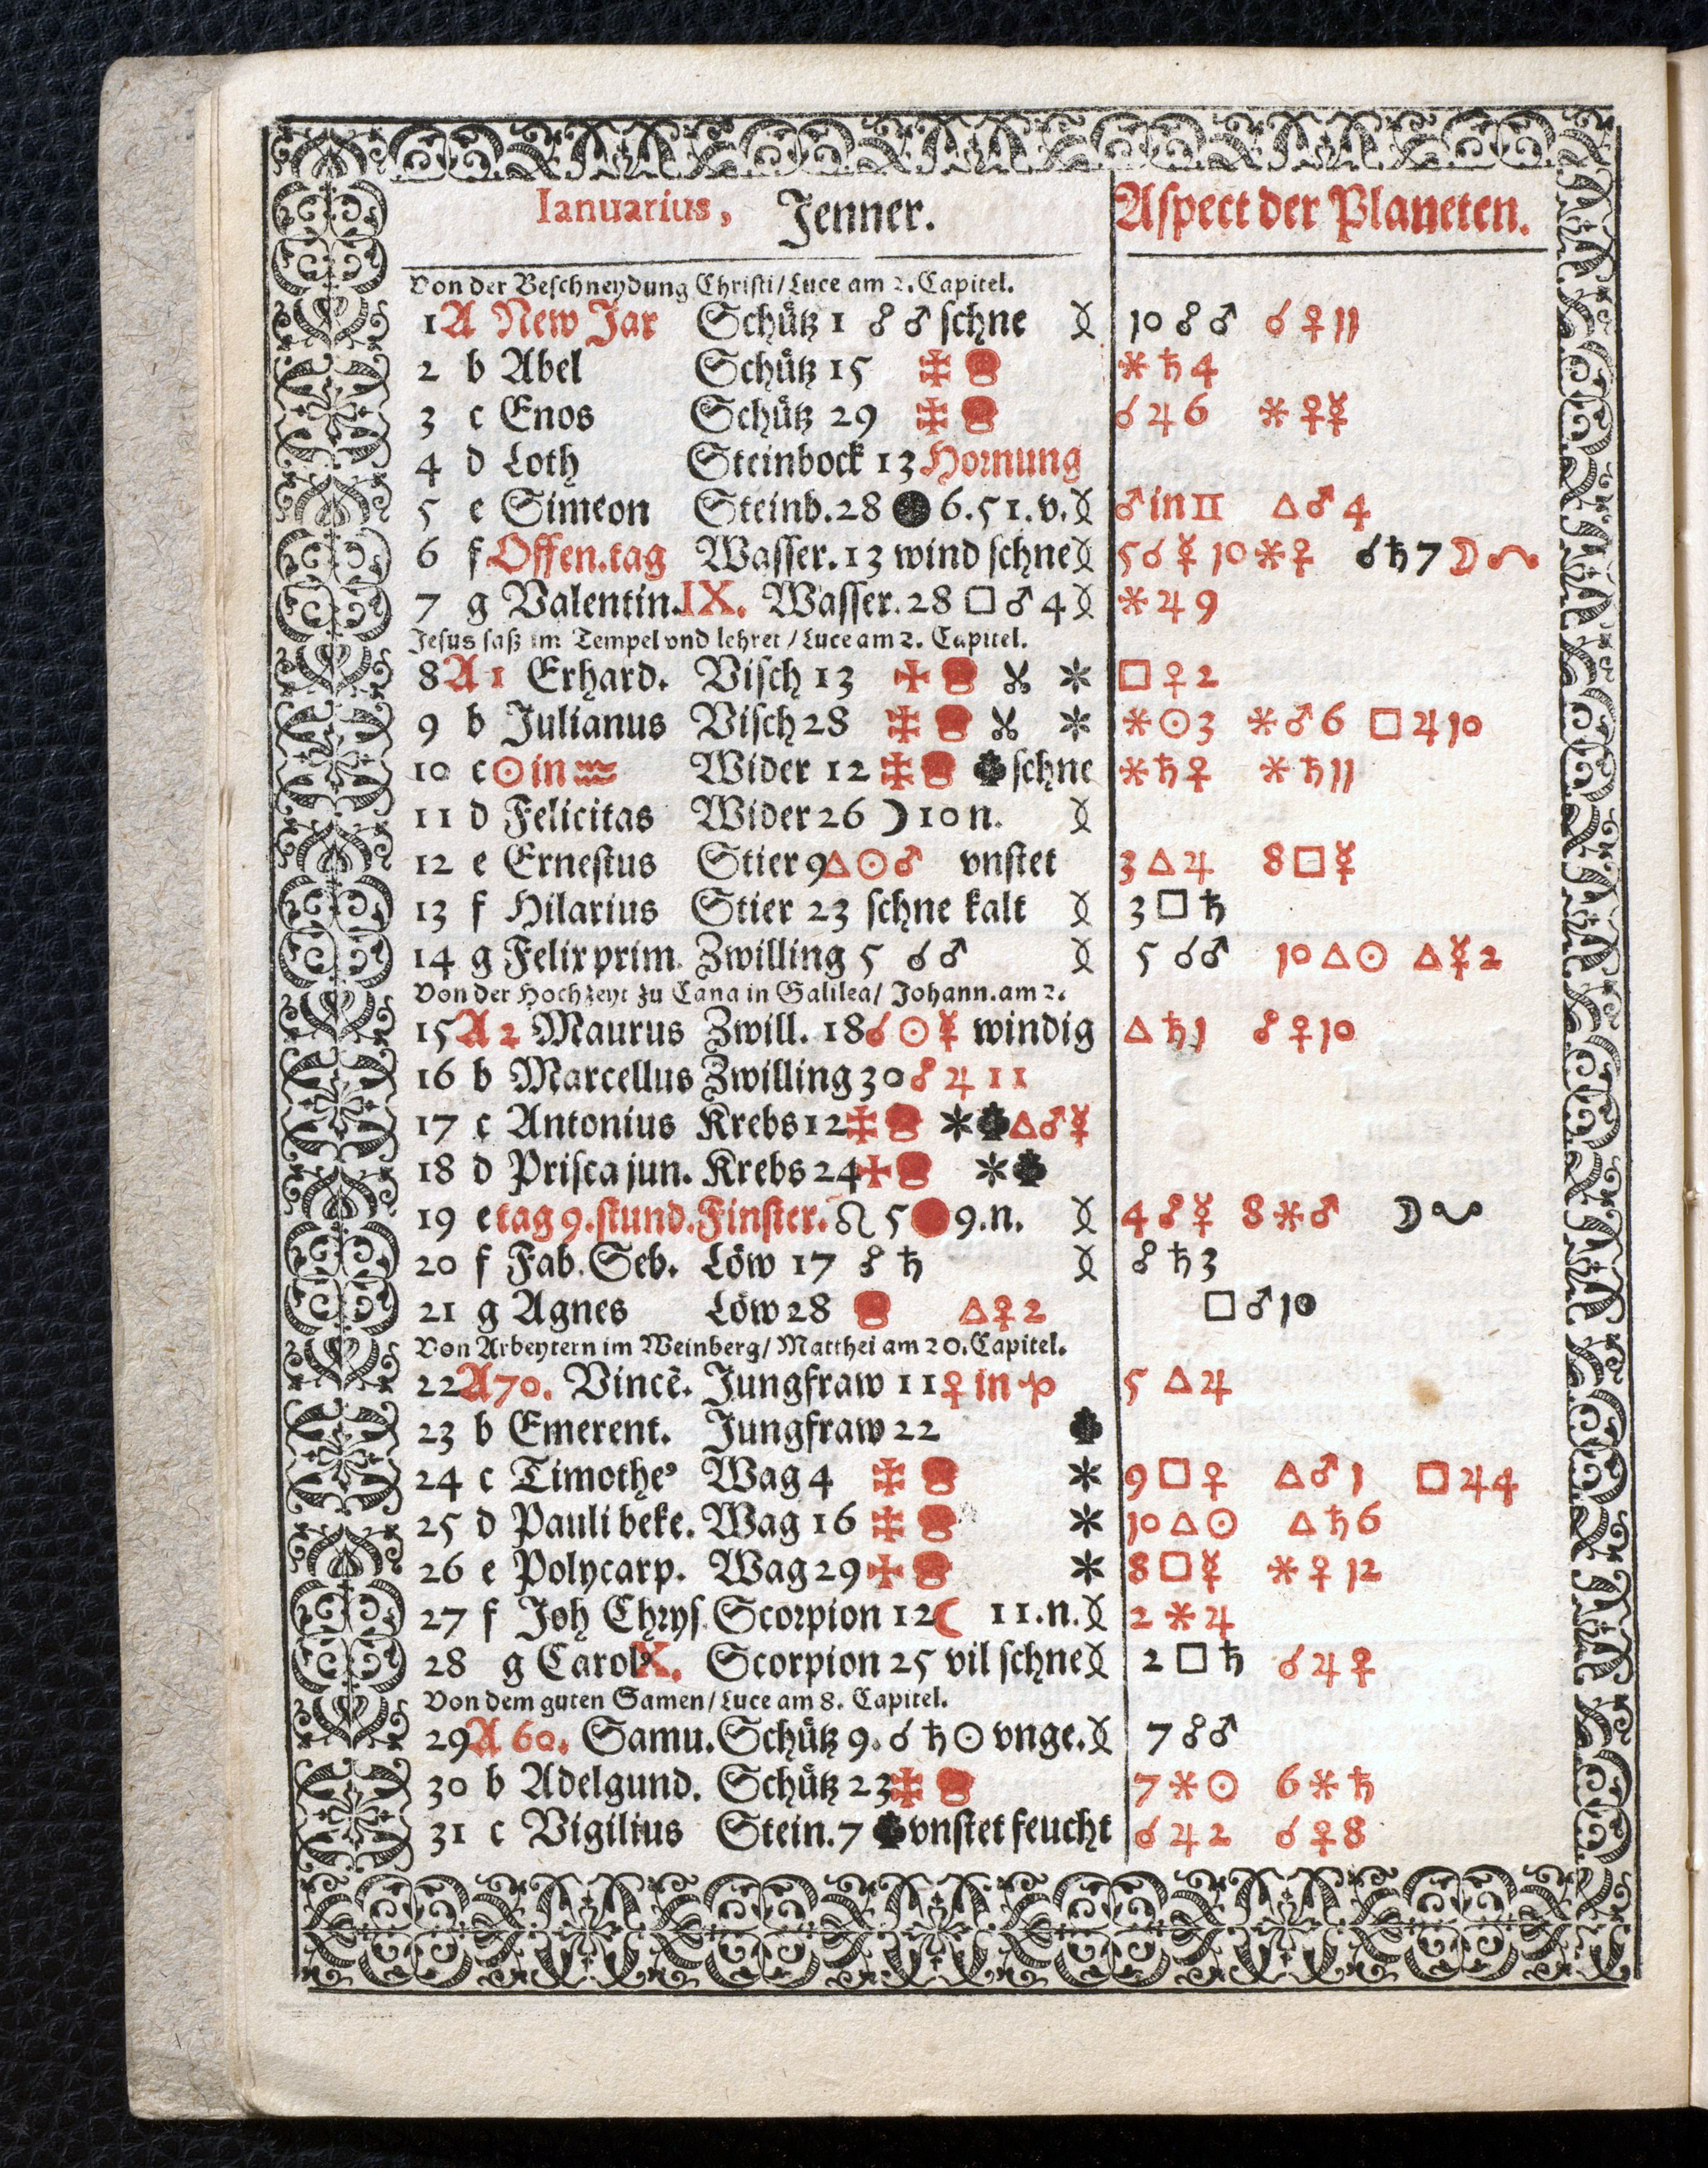 Ianuarius, Jenner.
Aspect der Planeten.
Von der Beschneydung Christi / Luce am 2. Capitel.
1 A New Jar Schütz 1 ☍ ♂ schne 10 ☍ ♂ ☌ ♀ 11
2 b Abel Schütz 15 ⚹ ♄ 4
3 c Enos Schütz 29 ☌ ♃ 6 ⚹ ♀ ☿
4 d Loth Steinbock 13 Hornung
5 e Simeon Steinb. 28 ● 6.51.v. ♂ in ♊ △ ♂ 4
6 f Offen.tag Wasser. 13 wind schne 5 ☌ ☿ 10 ⚹ ♀ ☌ ♄ 7 ☽ ☊
7 g Valentin. IX. Wasser. 28 □ ♂ 4 ⚹ ♃ 9
Jesus saß im Tempel vnd lehret / Luce am 2. Capitel.
8 A 1 Erhard. Visch 13 ✠ ✂ * □ ♀ 2
9 b Julianus Visch 28 ✂ * ⚹ ☉ 3 ⚹ ♂ 6 □ ♃ 10
10 c ☉ in ♒ Wider 12 schne ⚹ ♄ ♀ ⚹ ♄ 11
11 d Felicitas Wider 26 ☽ 10 n.
12 e Ernestus Stier 9 △ ☉ ♂ vnstet 3 △ ♃ 8 □ ☿
13 f Hilarius Stier 23 schne kalt 3 □ ♄
14 g Felix prim. Zwilling 5 ☌ ♂ 5 ☌ ♂ 10 △ ☉ △ ☿ 2
Von der Hochzeyt zu Cana in Galilea / Johann. am 2.
15 A 2 Maurus Zwill. 18 ☌ ☉ ☿ windig △ ♄ 1 ☍ ♀ 10
16 b Marcellus Zwilling 30 ☍ ♃ 11
17 c Antonius Krebs 12 * △ ♂ ☿
18 d Prisca jun. Krebs 24 ✠ *
19 e tag 9. stund. Finster. ♌ 5 ● 9.n. 4 ☍ ☿ 8 ⚹ ♂ ☽ ☋
20 f Fab. Seb. Löw 17 ☍ ♄ ☍ ♄ 3
21 g Agnes Löw 28 △ ♀ 2 □ ♂ 10
Von Arbeytern im Weinberg / Matthei am 20. Capitel.
22 A 70. Vincē. Jungfraw 11 ♀ in 5 △ ♃
23 b Emerent. Jungfraw 22
24 c Timotheꝰ Wag 4 * 9 □ ♀ △ ♂ 1 □ ♃ 4
25 d Pauli beke. Wag 16 * 10 △ ☉ △ ♄ 6
26 e Polycarp. Wag 29 ✠ * 8 □ ☿ ⚹ ♀ 12
27 f Joh Chrys. Scorpion 12 ☾ 11.n. 2 ⚹ ♃
28 g Carolꝰ X. Scorpion 25 vil schne 2 □ ♄ ☌ ♃ ♀
Von dem guten Samen / Luce am 8. Capitel.
29 A 60. Samu. Schütz 9. ☌ ♄ ☉ vnge. 7 ☍ ♂
30 b Adelgund. Schütz 23 7 ⚹ ☉ 6 ⚹ ♄
31 c Vigilius Stein. 7 vnstet feucht ☌ ♃ 2 ☌ ♀ 8